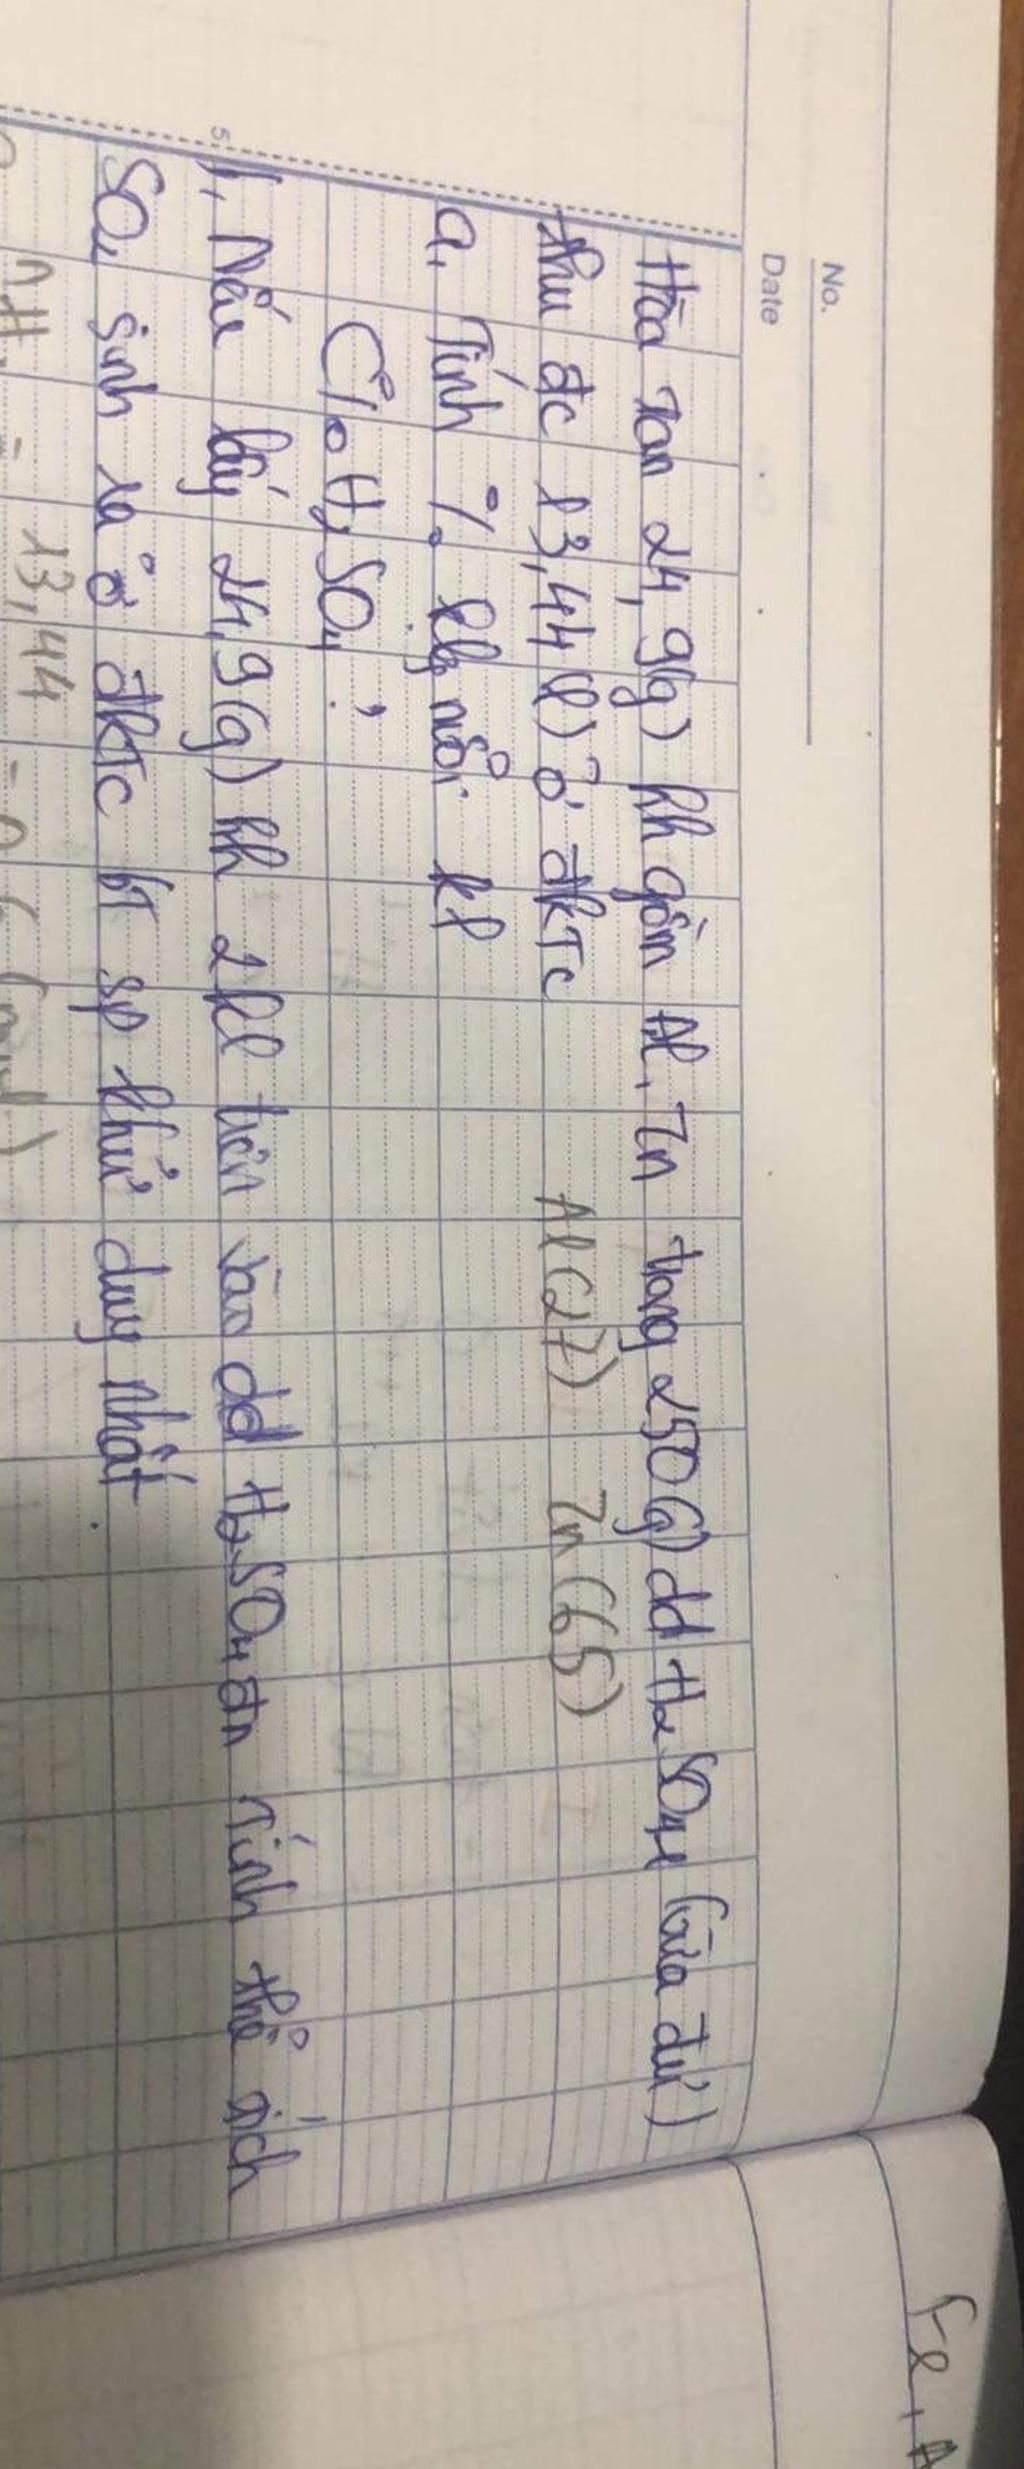 No.
Date
Hòa tan 24,9(g) hh gồm Al, Zn trong 250(g) dd H₂SO₄ (vừa đủ)
thu đc 13,44 (l) ở đkTc
Al(27) Zn(65)
a, Tính % klg mỗi kl
C% H₂SO₄?
b, Nếu lấy 24,9(g) hh 2 kl trên vào dd H₂SO₄ đn Tính thể tích
SO₂ sinh ra ở đkTc bt sp khử duy nhất
nH₂ = 13,44
Fe, A
5